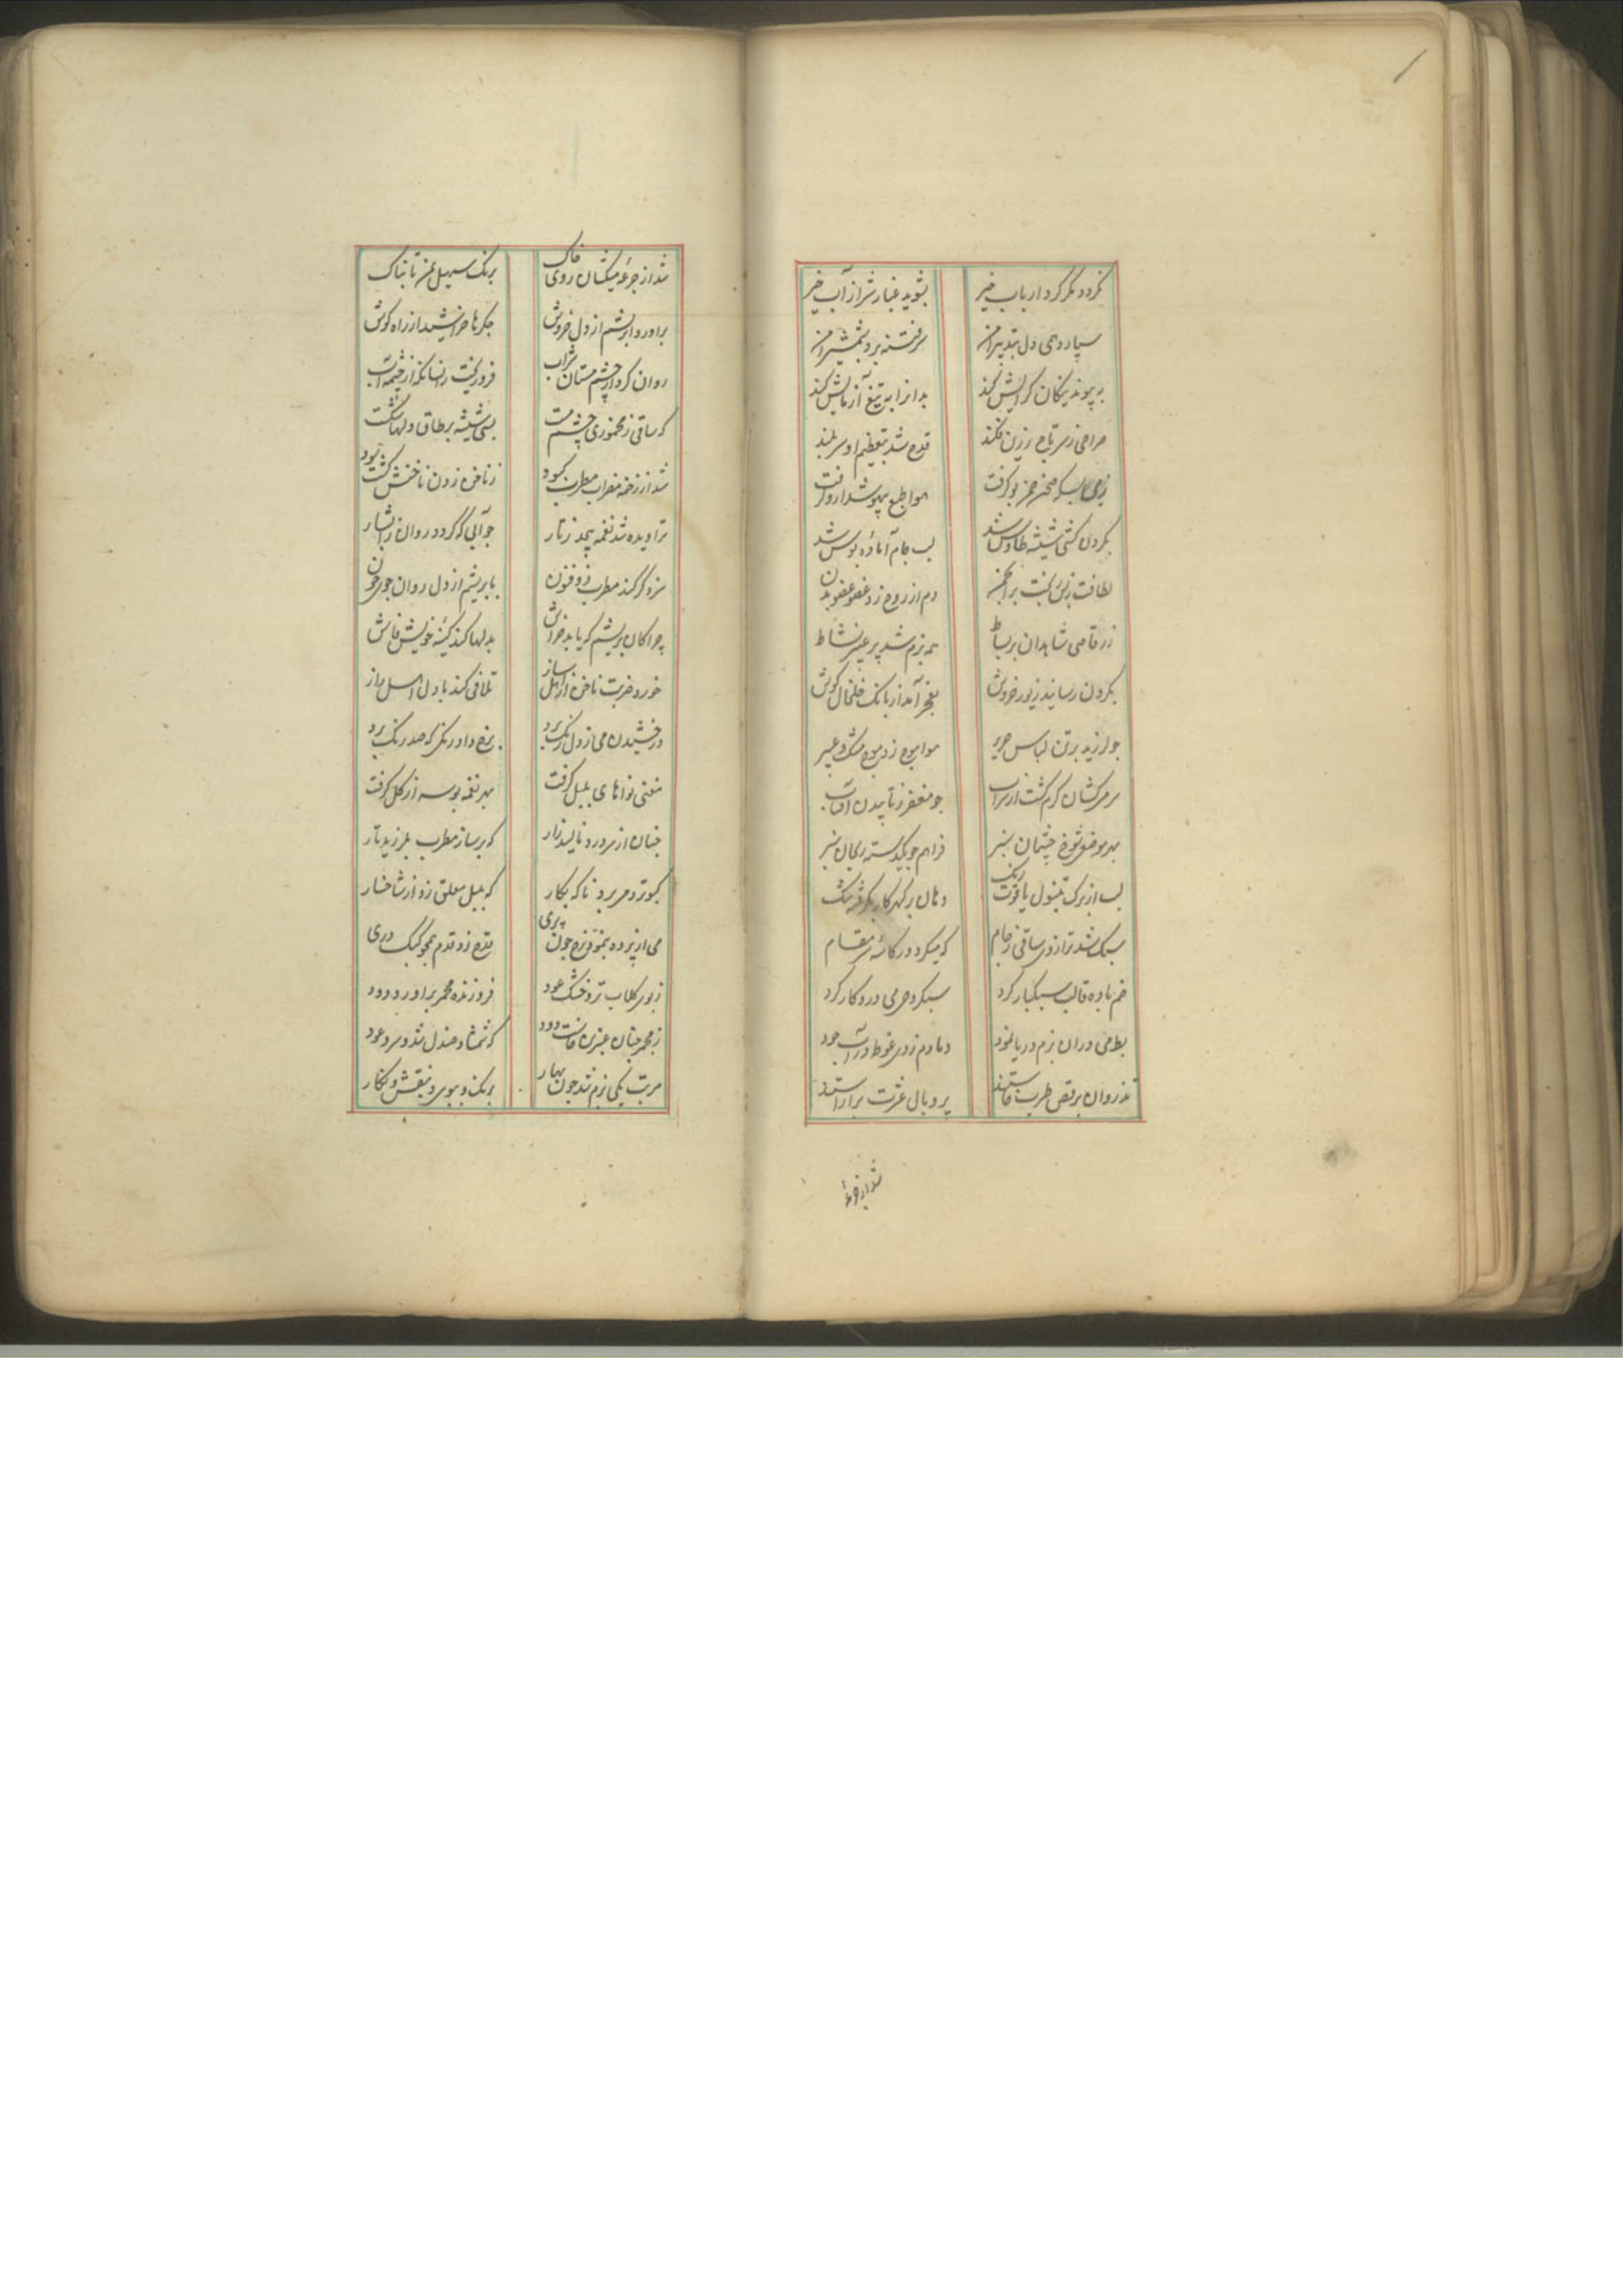 نکردد مکر کرد ارباب خیر بشوید غبار شر از آب خیر
سپارد دل بتدبیر امن سر فتنه برد بشمشیر امن
به پیوند نیکان کرایش کند بدانرا به تیغ آزمایش کند
صراحی ز سر تاج زرین فکند قدح شد بتعظیم او سر بلند
ز می بسکه بو کرفت هوا طبع بیهوشدارو کرفت
بکردن کشی شیشه طاوس شد لب جام آماده بوس شد
لطافت ز بس ریخت بر انجمن دم از روح زد عضو عضو بدن
ز رقاصی شاهدان بر بساط همه بزم شد پر عبیر نشاط
بکردن رسانید زیور خروش بفخر آمد از بانک خلخال کوش
جو لرزید بر تن لباس حریر هوا موج زد موج مشک و عبیر
سر سرکشان کرم کشت از شراب جو مغفر ز تابیدن آفتاب
بهر موضعی شوخ چشمان سبز فراهم جو یکدسته ریحان سبز
لب از برک تنبول یاقوت رنک دهان بر کهر کار بکرفته تنک
سبک شد ترازوی ساقی ز جام که میکرد در کاسه سر مقام
خم باده قالب سبکبار کرد سبکروحی می درو کار کرد
بط می در ان بزم دریا نمود دمادم زدی غوطه در آب جود
تذروان برقص طرب خاستند پر و بال عشرت براراستند
شد از جرعه
شد از جرعه میکشان روی خاک برنک سهیل یمن تابناک
براورد ابریشم از دل خروش جکرها خراشید از راه کوش
روان کرد از چشم مستان شراب فرو ریخت زانسانکه از چشمه آب
که ساقی ز مخموری چشم مست بسی شیشه بر طاق دلها شکست
شد از زخمه مضراب مطرب کبود ز ناخن زدن ناخنش کشت بود
تراویده شد نغمه بیحد ز تار جو آبی که کردد روان ز ابشار
سزد کر کند مطرب ذو فنون بابریشم از دل روان جوی خون
چرا کان بریشم که یابد خراش بدلها کند کینه خویش فاش
خورد ضربت ناخن از اهل ساز تلافی کند با دل اهل راز
درخشیدن می ز دل زنک برد برخ داد رنکی که صد رنک برد
مغنی نواهای بلبل کرفت بهر نغمه بوسه از کل کرفت
جنان از سر درد نالید زار که بر ساز مطرب بلرزید تار
کبوتر دمی برد ناکه بکار که بلبل معلق زد از شاخسار
می از پرده بنمود رخ جون پری قدح زد قدم همجو کبک دری
ز بوی کلاب تر و خشک عود فروزنده مجمر براورد دود
ز مجمر جنان عنبرین خاست دود که شمشاد صندل شد و سرو عود
مرتب یکی بزم شد جون بهار برنک و ببوی و بنقش و نکار